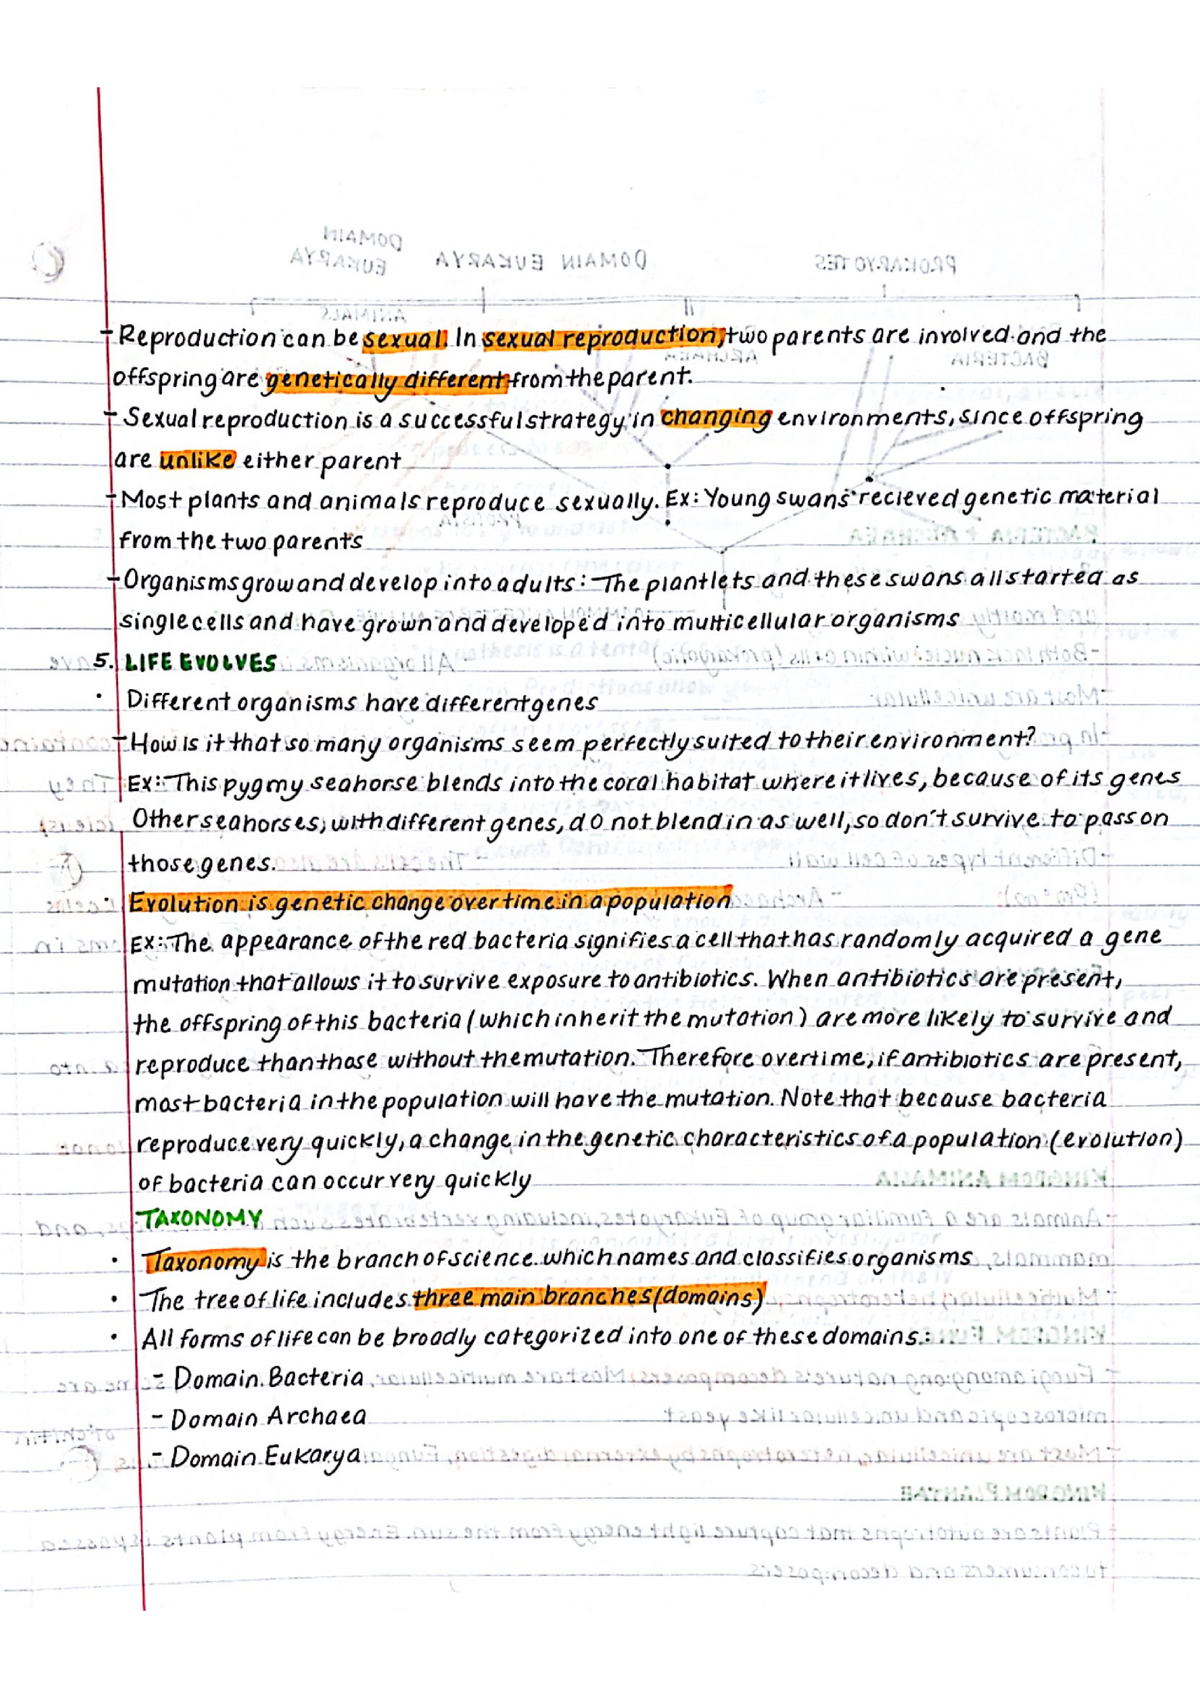 - Reproduction can be sexual. In sexual reproduction, two parents are involved and the
offspring are genetically different from the parent.
- Sexual reproduction is a successful strategy in changing environments, since offspring
are unlike either parent
- Most plants and animals reproduce sexually. Ex: Young swans recieved genetic material
from the two parents
- Organisms grow and develop into adults: The plantlets and these swans all started as
single cells and have grown and developed into multicellular organisms
5. LIFE EVOLVES
• Different organisms have different genes
- How is it that so many organisms seem perfectly suited to their environment?
Ex: This pygmy seahorse blends into the coral habitat where it lives, because of its genes
Other seahorses, with different genes, do not blend in as well, so don't survive to pass on
those genes.
• Evolution is genetic change over time in a population
Ex: The appearance of the red bacteria signifies a cell that has randomly acquired a gene
mutation that allows it to survive exposure to antibiotics. When antibiotics are present,
the offspring of this bacteria (which inherit the mutation) are more likely to survive and
reproduce than those without the mutation. Therefore overtime, if antibiotics are present,
most bacteria in the population will have the mutation. Note that because bacteria
reproduce very quickly, a change in the genetic characteristics of a population (evolution)
of bacteria can occur very quickly
TAXONOMY
• Taxonomy is the branch of science which names and classifies organisms
• The tree of life includes three main branches (domains)
• All forms of life can be broadly categorized into one of these domains:
- Domain Bacteria
- Domain Archaea
- Domain Eukarya